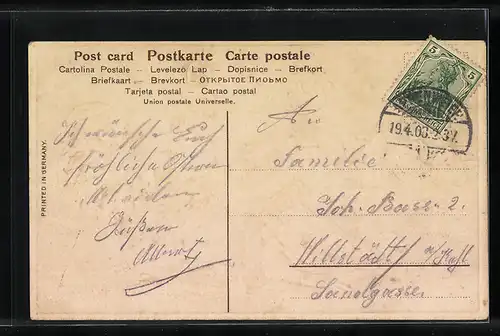 Post card Postkarte Carte postale
Cartolina Postale – Levelező Lap – Dopisnice – Brefkort
Briefkaart – Brevkort – ОТКРЫТОЕ ПИСЬМО
Tarjeta postal – Cartao postal
Union postale Universelle.
PRINTED IN GERMANY.
Ich wünsche Euch
fröhliche Ostern
Mit vielen
Grüßen
Albert
5 5
19.4.06
An
Familie
Joh. Bass 2.
Willstädt
Sandgasse